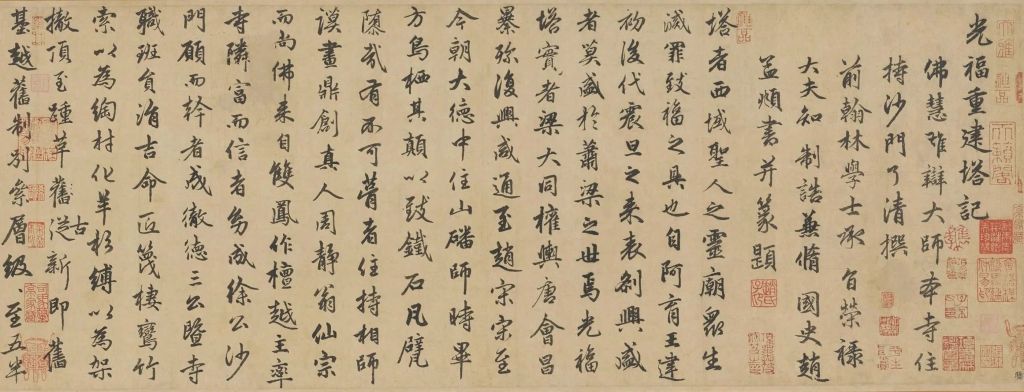 光福重建塔記
佛慧雄辯大師本寺住
持沙門了清撰
前翰林學士承旨榮祿
大夫知制誥兼脩國史趙
孟頫書并篆題
塔者西域聖人之靈廟眾生
滅罪致福之具也自阿育王建
初後代震旦之來表剎興盛
者莫盛於蕭梁之世焉光福
塔實者梁大同權輿唐會昌
暴殄復興咸通至趙宋宋至
今朝大德中住山磻師時畢
方鳥栖其顛以致鐵石凡甓
有不可瞢者住持相師
謨畫鼎創真人周靜翁仙宗
而尚佛來自雙鳳作檀越主率
寺隣富而信者多成徐公沙
門願而幹者成徹德三公暨寺
職班員涓吉命匠篾棲鸞竹
索以為綯材化羊杉縛以為架
撤頂至踵革舊從新即舊
古
基越舊制別察層級、至五半